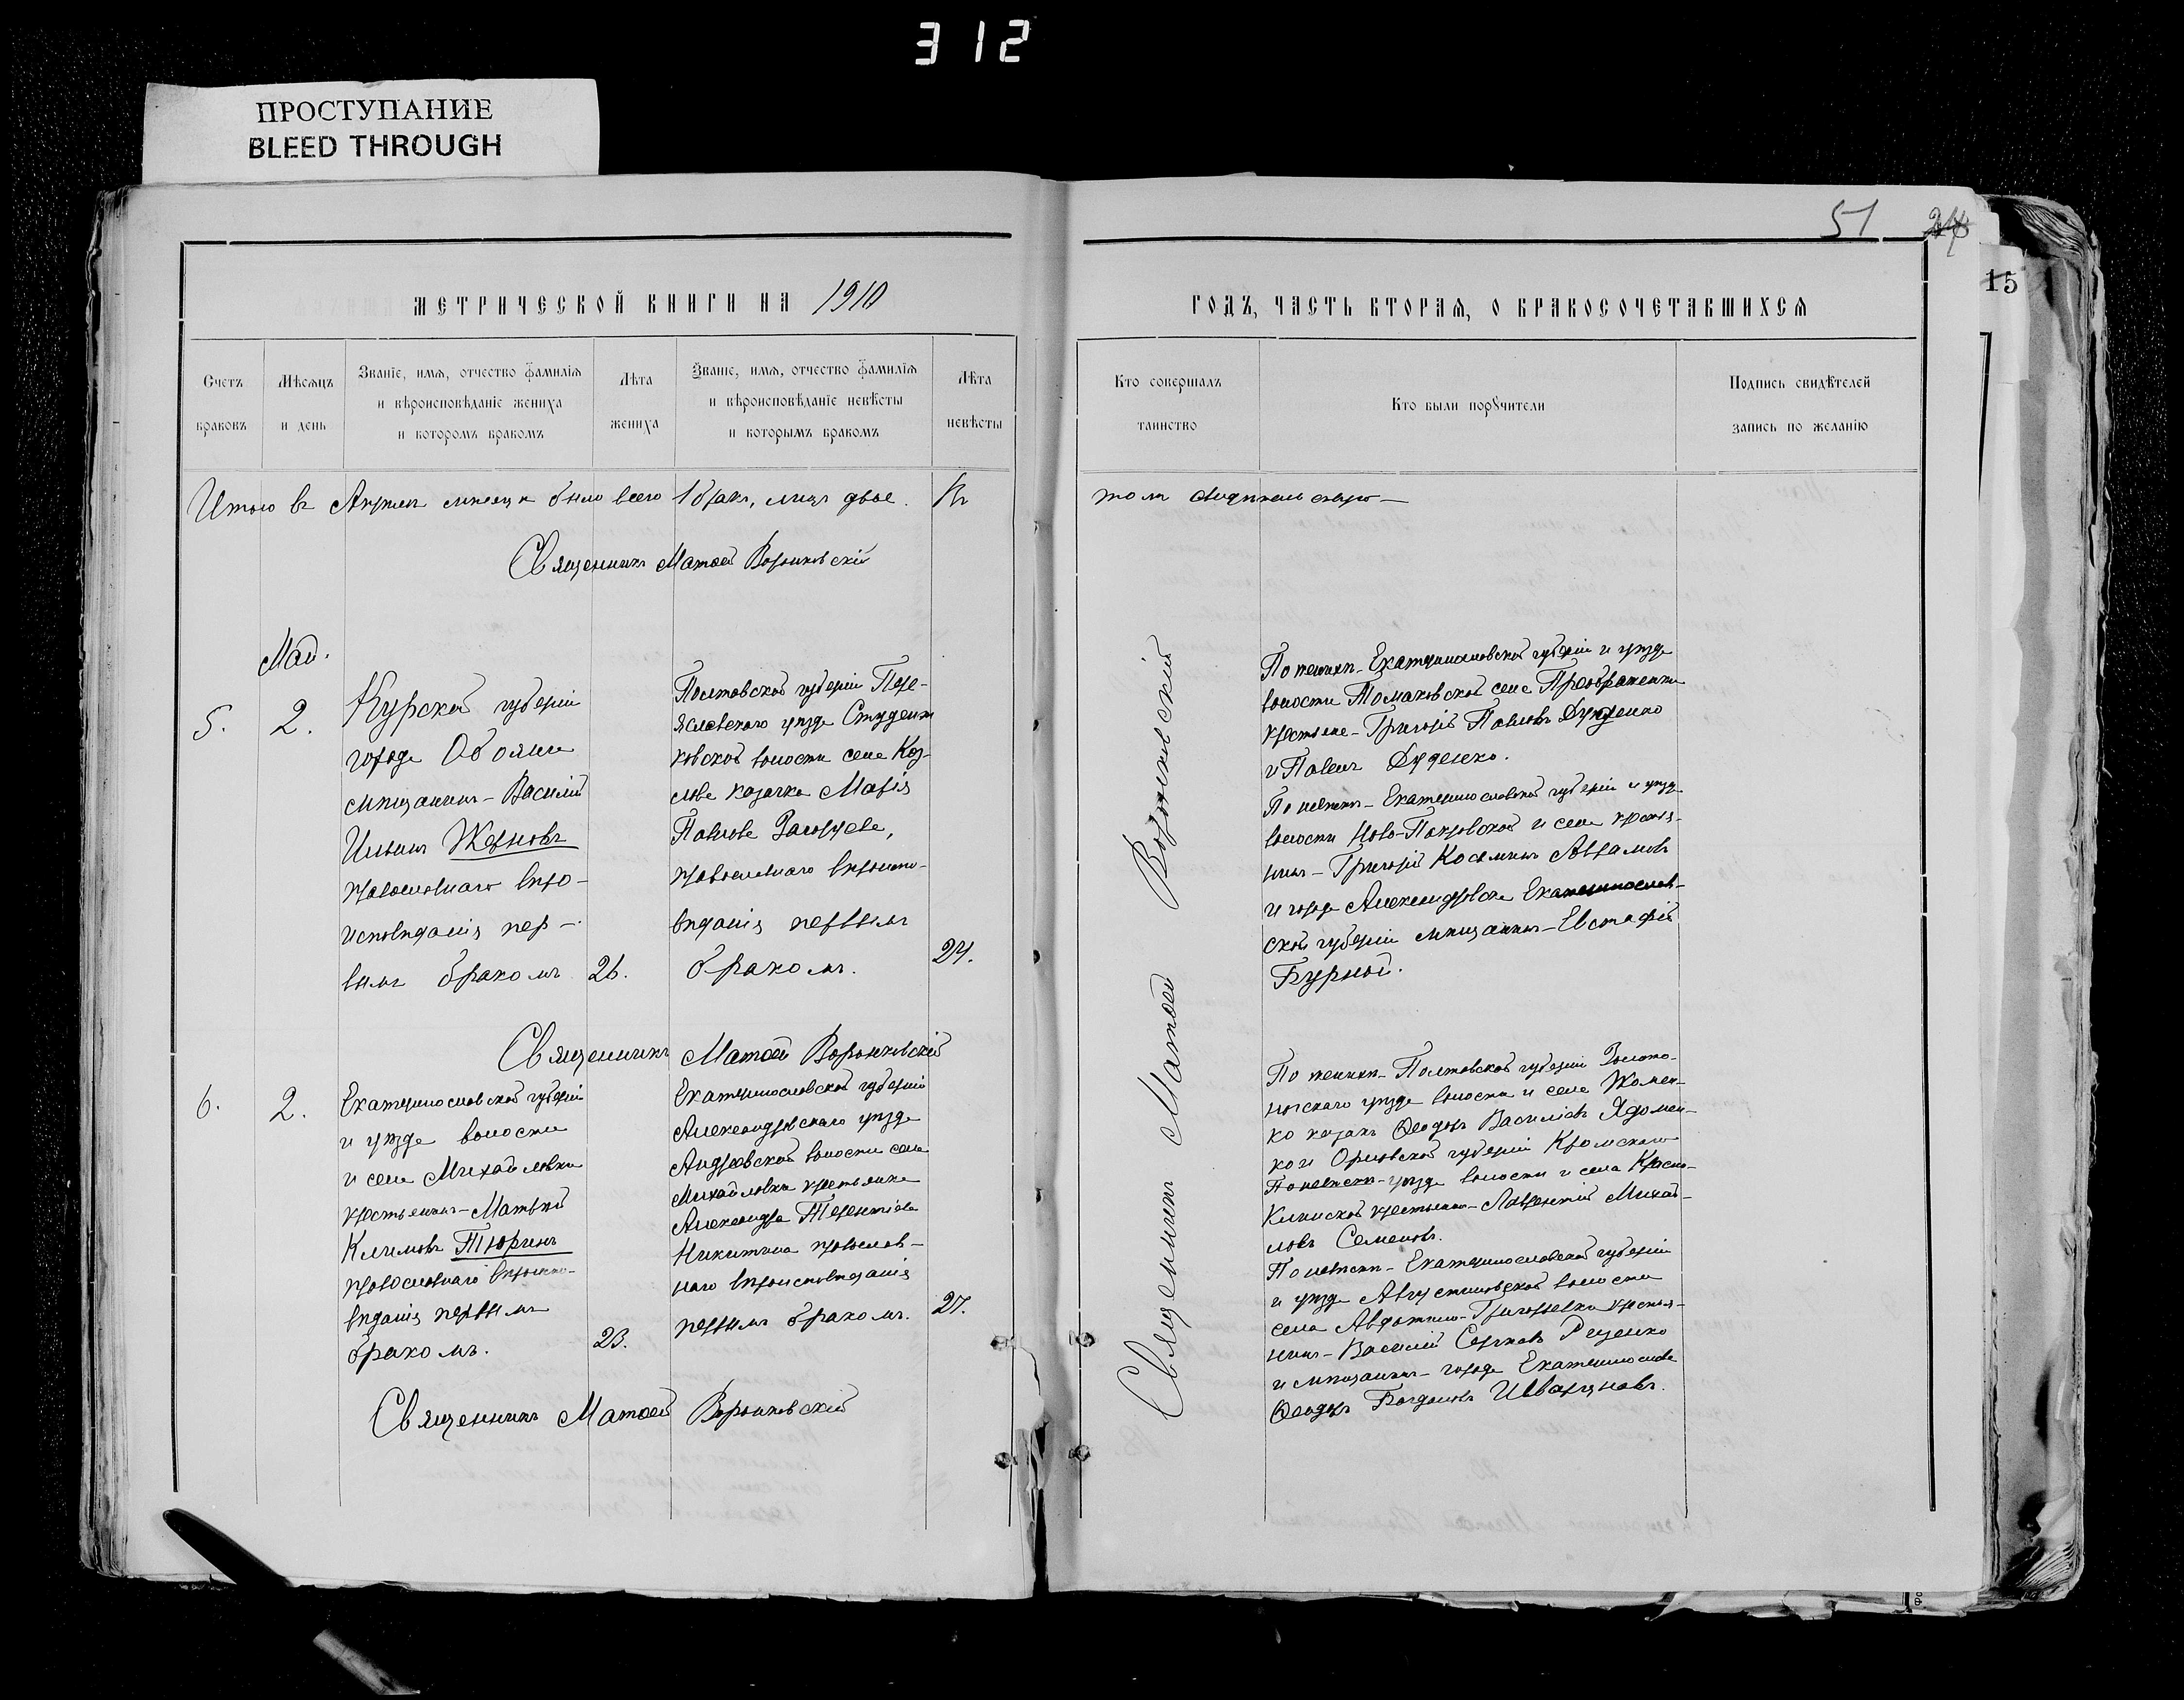 312
ПРОСТУПАНИЕ
BLEED THROUGH
51 24
15
МЕТРИЧЕСКОЙ КНИГИ НА 1910
ГОДЪ, ЧАСТЬ ВТОРАЯ, О БРАКОСОЧЕТАВШИХСЯ
Счетъ браковъ
Мѣсяцъ и день
Званіе, имя, отчество фамилія
и вѣроисповѣданіе жениха
и которомъ бракомъ
Лѣта жениха
Званіе, имя, отчество фамилія
и вѣроисповѣданіе невѣсты
и которымъ бракомъ
Лѣта невѣсты
Кто совершалъ
таинство
Кто были порѹчители
Подпись свидѣтелей
запись по желанію
Итого въ Апрѣлѣ мѣсяцѣ было всего 1 бракъ, лицъ двое. Въ
томъ свидѣтельствую
Священникъ Матѳей Воронковскій
Май.
5.
2.
Курской губерніи
города Обояни
мѣщанинъ - Василій
Ильинъ Жерновъ
православнаго вѣро-
исповѣданія пер-
вымъ бракомъ
26.
Полтавской губерніи Пере-
яславскаго уѣзда Студени
ковской волости села Коз-
лова козачка Марія
Павлова
православнаго вѣроиспо-
вѣданія первымъ
бракомъ.
24.
Священникъ Матѳей Воронковскій
По женихѣ - Екатеринославской губерніи и уѣзда
волости Томаковской села Преображенки
крестьяне - Григорій Павловъ Дуденко
и Павелъ Дуденко.
По невѣстѣ - Екатеринославской губерніи и уѣзда
волости Ново-Покровской и села крестья-
нинъ - Григорій Косьминъ Абрамовъ
и города Александровска Екатеринослав-
ской губерніи мѣщанинъ - Евстафій
Бурной.
Священникъ Матѳей Воронковскій
6.
2.
Екатеринославской губерніи
и уѣзда волости
и села Михайловки
крестьянинъ - Матвѣй
Климовъ Тюринъ
православнаго вѣроиспо-
вѣданія первымъ
бракомъ.
23.
Екатеринославской губерніи
Александровскаго уѣзда
Андреевской волости села
Михайловки крестьянка
Александра Терентіева
Никитина православ-
наго вѣроисповѣданія
первымъ бракомъ.
27.
По женихѣ - Полтавской губерніи Золото-
ношскаго уѣзда волости и села
козакъ Ѳеодоръ Василіевъ
и Орловской губерніи Кромскаго
По невѣстѣ - уѣзда волости и села
крестьянинъ - Лаврентій Михай-
ловъ Семеновъ.
По невѣстѣ - Екатеринославской губерніи
и уѣзда Августиновской волости
села крестья-
нинъ - Василій Сергѣевъ Руденко
и мѣщанинъ - города Екатеринослава
Ѳеодоръ Богдановъ
Священникъ Матѳей Воронковскій